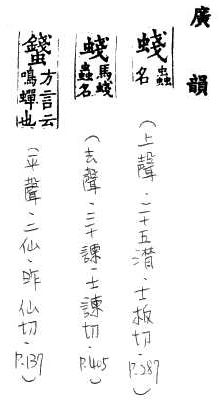 廣韻
蝬 蟲名
（上聲．二十五潸．士板切．P.287）
蝬 馬蝬蟲名
（去聲．三十諫．士諫切．P.405）
蠽 方言云鳴蟬也
（平聲．二仙．昨仙切．P.139）